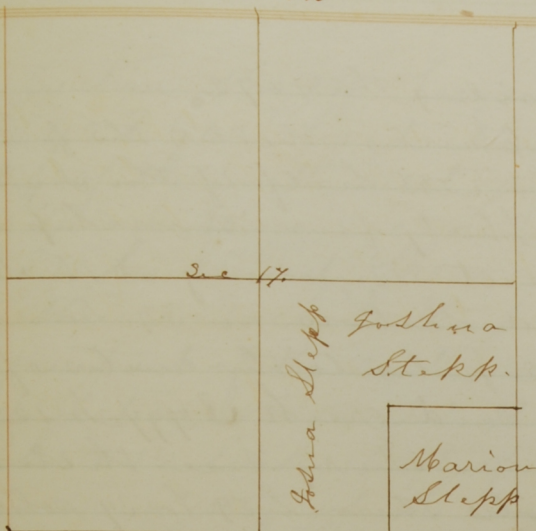 Sec 17.
Joshua
Stepp.
Josua Stepp
Marion
Stepp